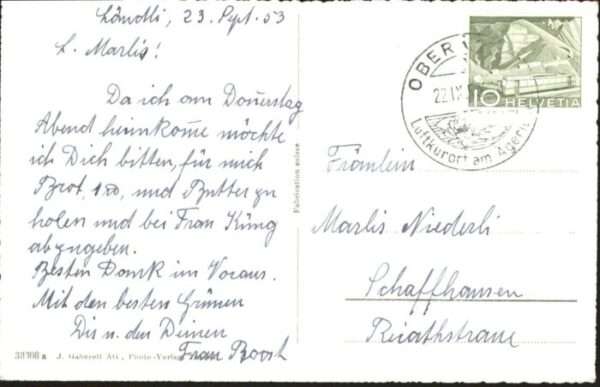 Ländli, 23. Sept. 53
L. Marlis!
Da ich am Donnerstag
Abend heimkome möchte
ich Dich bitten, für mich
Brot, und Butter zu
holen und bei Frau Küng
abzugeben.
Besten Dank im Voraus.
Mit den besten Grüssen
Dir u. den Deinen
Frau Boost
33308 a J. Gaberell Photo-Verlag
Fabrication suisse
OBER
22.IX
Luftkurort am Ägeri
10 HELVETIA
Fräulein
Marlis Niederli
Schaffhausen
Rietstrasse